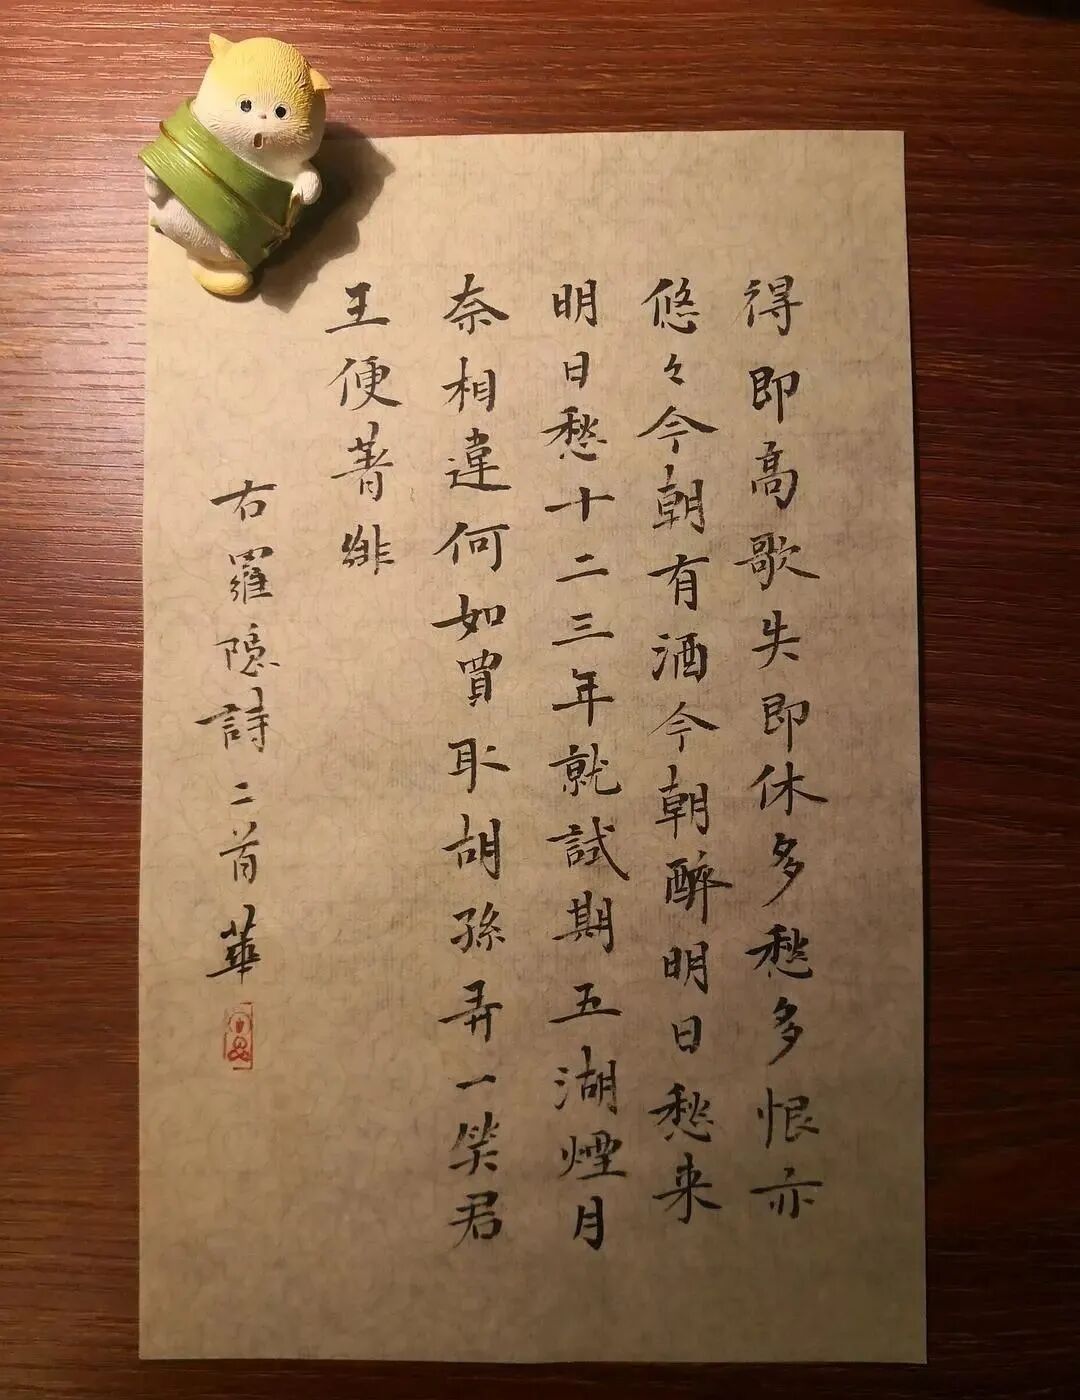 得即高歌失即休多愁多恨亦
悠々今朝有酒今朝醉明日愁来
明日愁十二三年就試期五湖煙月
奈相違何如買取胡孫弄一笑君
王便著緋
右羅隠詩二首華